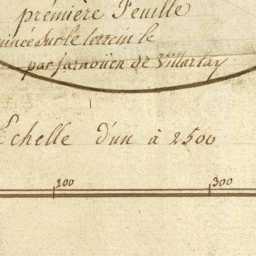 première Feuille
sur le terrein le
par Jarnoüen de Villartay
Echelle d'un à 2500
100 300